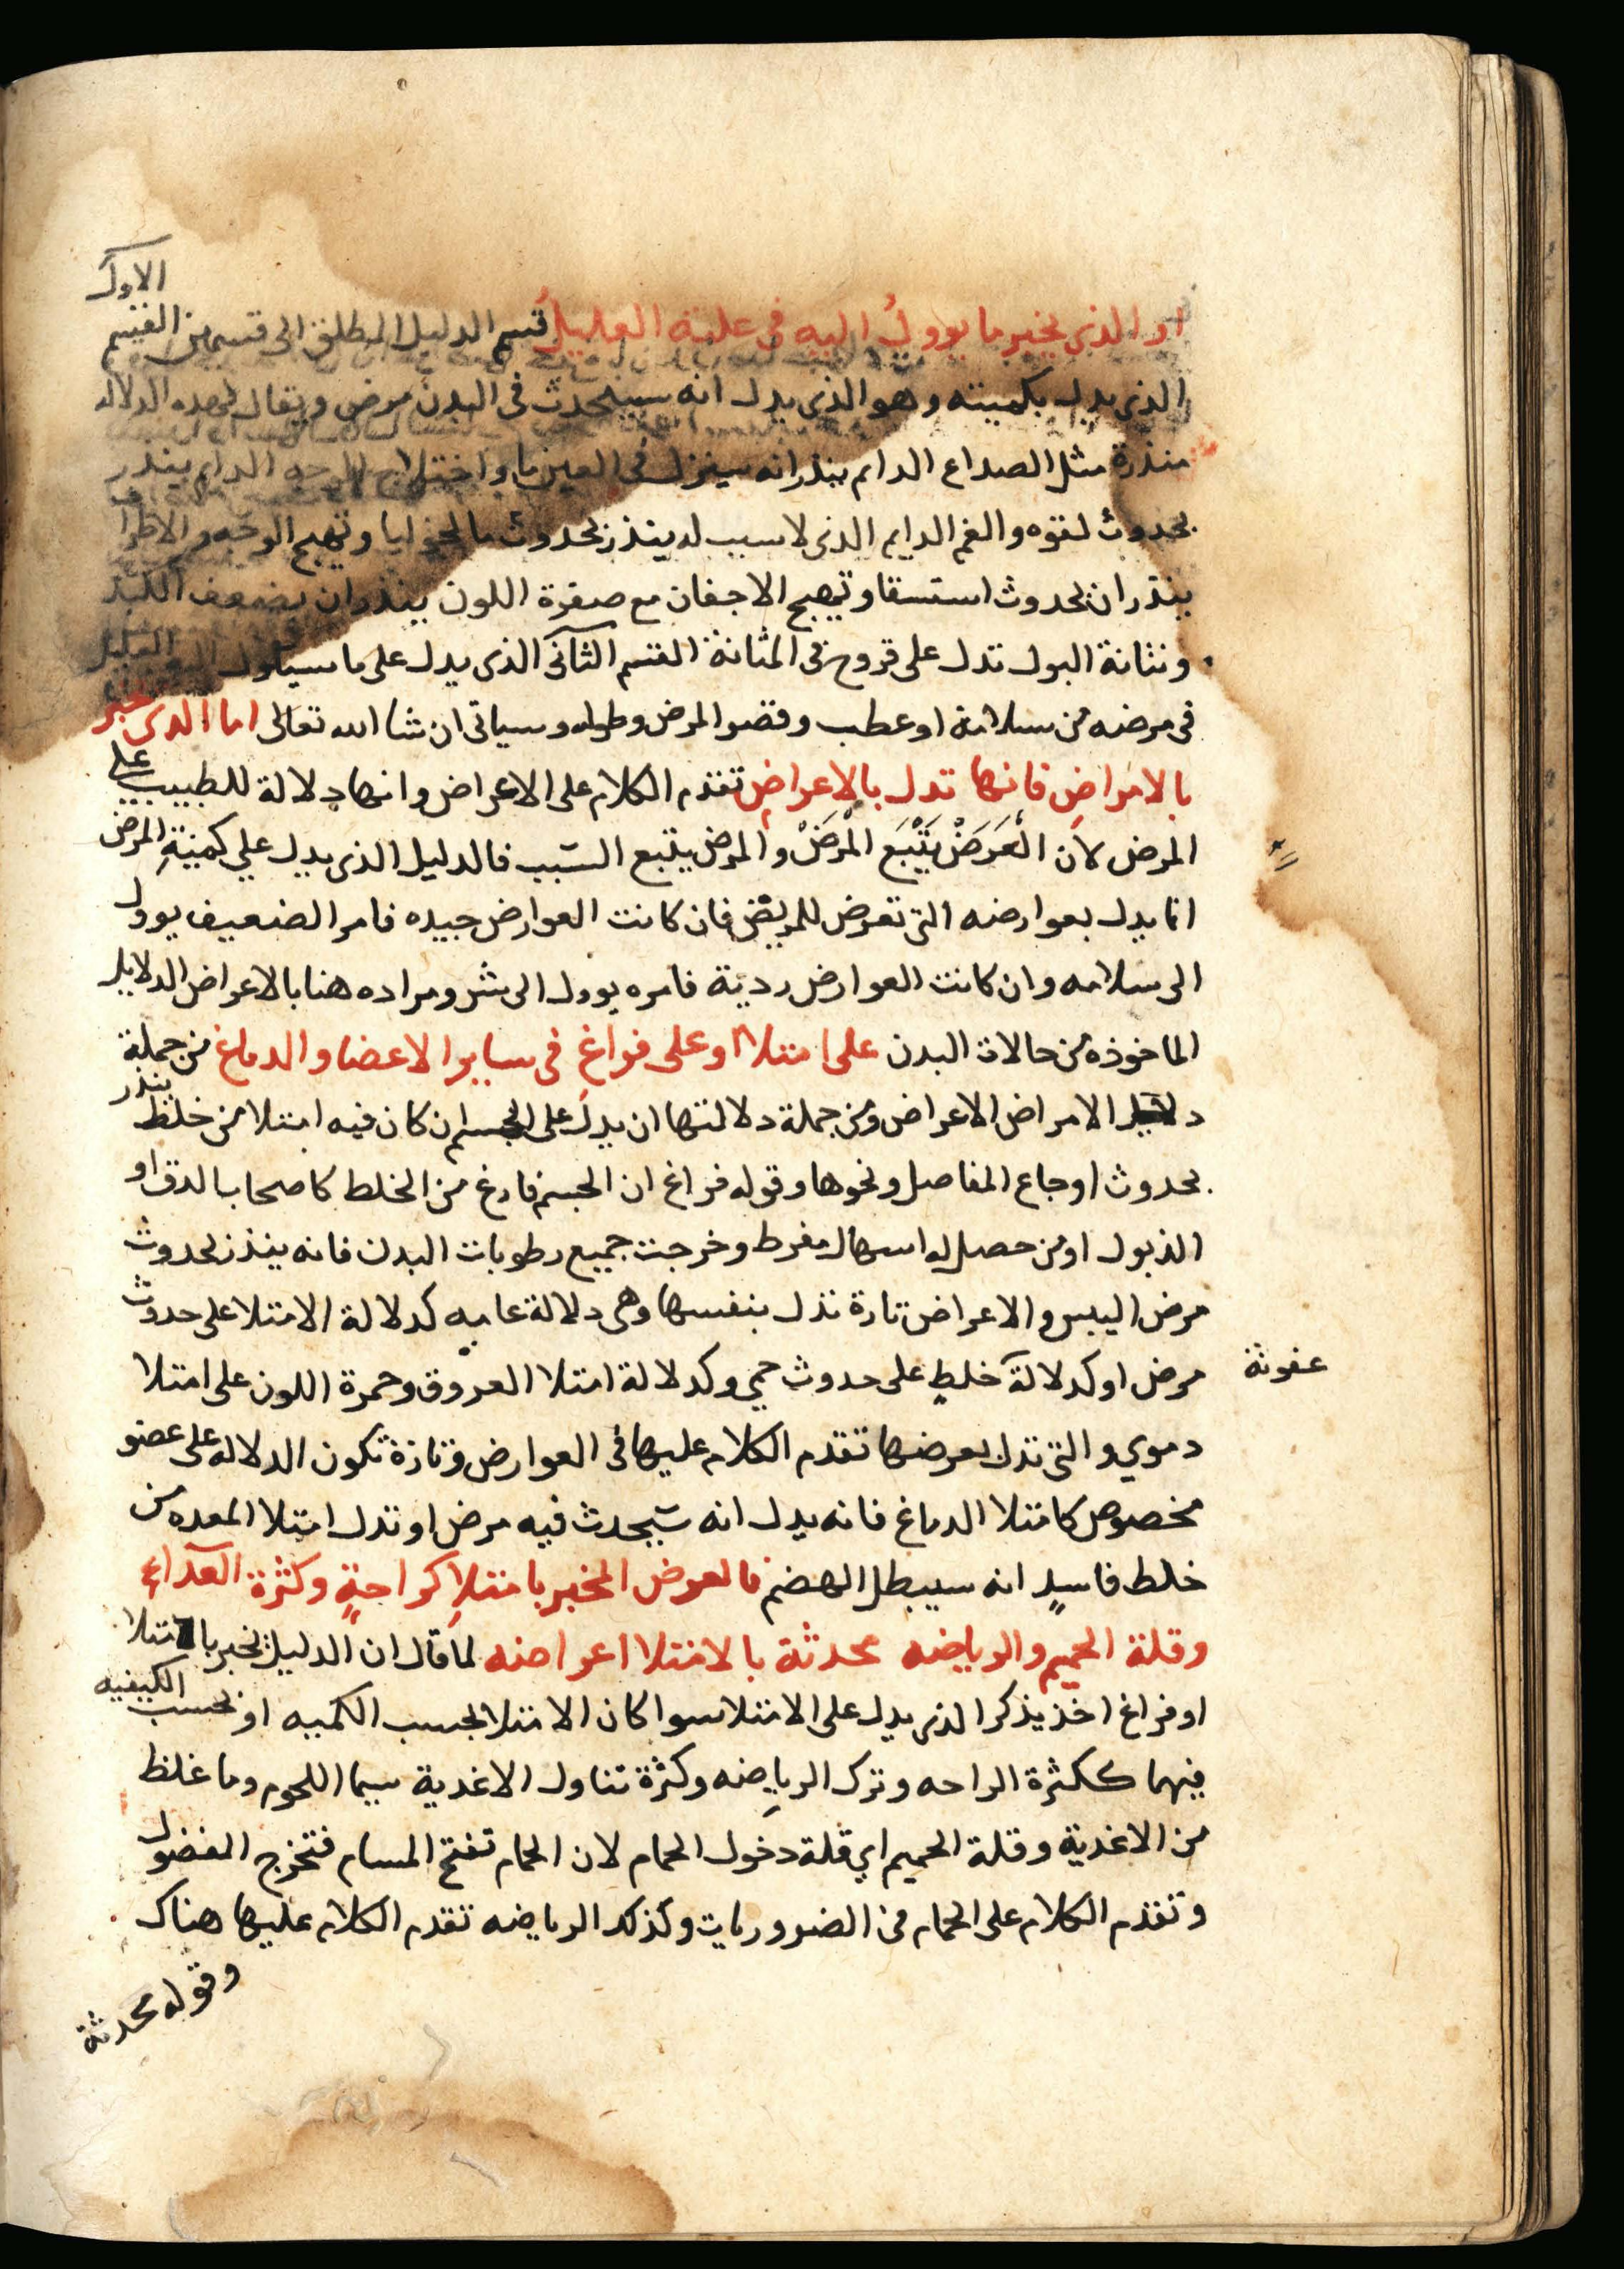 الاول
او الذي يخبر ما يوولُ اليه في علته العليلُ قسم الدليل المطلق الى قسمين القسم
الذي يدل بكميته وهو الذي يدل انه سيحدث في البدن مرض ويقال لهذه الدلاله
منذرة مثل الصداع الدايم ينذر انه سينزل في العين ما واختلاج الوجه الدايم ينذر
بحدوث لقوه والغم الدايم الذي لا سبب له ينذر بحدوث مالخوليا وتهيج الوجه والاطرا
ينذران بحدوث استسقا وتهيج الاجفان مع صفرة اللون ينذران بضعف الكبد
ونتانة البول تدل على قروح في المثانة القسم الثاني الذي يدل على ما سياول اليه العليل
في مرضه من سلامة او عطب وقصر المرض وطوله وسياتي ان شا الله تعالى اما الذي يخبر
بالامراضِ فانها تدل بالاعراضِ تقدم الكلام على الاعراض وانها دلالة للطبيب على
المرض لان الْعَرَضْ يَتْبَع الْمَرَضْ والمرض يتبع السبب فالدليل الذي يدل علي كميّةِ المرض
انما يدل بعوارضه التي تعرض للمريض فان كانت العوارض جيده فامر الضعيف يوول
الى سلامه وان كانت العوارض رديّة فامره يوول الى شر ومراده هنا بالاعراض الدلايل
الماخوذه من حالات البدن على امتلا او على فراغِ في ساير الاعضا والدماغ من جملة
دلايل الامراض الاعراض ومن جملة دلالتها ان يدل على الجسم ان كان فيه امتلا من خلط ينذر
بحدوث اوجاع المفاصل ونحوها وقوله فراغ ان الجسم فارغ من الخلط كاصحاب الدق او
الذبول او من حصل له اسهال مفرط وخرجت جميع رطوبات البدن فانه ينذر بحدوث
مرض اليبس والاعراض تارة تدل بنفسها وهي دلالة عاميه كدلالة الامتلا على حدوث
مرض او كدلالة خلطٍ على حدوث حمي وكدلالة امتلا العروق وحمرة اللون على امتلا
عفونة
دموي والتي تدل بعرضها تقدم الكلام عليها في العوارض وتارة تكون الدلاله على عضو
مخصوص كامتلا الدماغ فانه يدل انه سيحدث فيه مرض او تدل امتلا المعده من
خلط فاسدٍ انه سيبطل الهضم فالعرض المخبر بامتلاِ كراحةٍ وكثرة الغداءِ
وقلة الحميم والرياضه محدثة بالامتلا اعراضه لما قال ان الدليل يخبر بالامتلا
او فراغ اخذ يذكر الذي يدل على الامتلا سوا كان الامتلا بحسب الكميه او بحسب الكيفيه
فيهما ككثرة الراحه وترك الرياضه وكثرة تناول الاغدية سيما اللحوم وما غلظ
من الاغدية وقلة الحميم اي قلة دخول الحمام لان الحمام تفتح المسام فتخرج الفضول
وتقدم الكلام على الحمام في الضروريات وكذلك الرياضه تقدم الكلام عليها هناك
وقوله محدثة